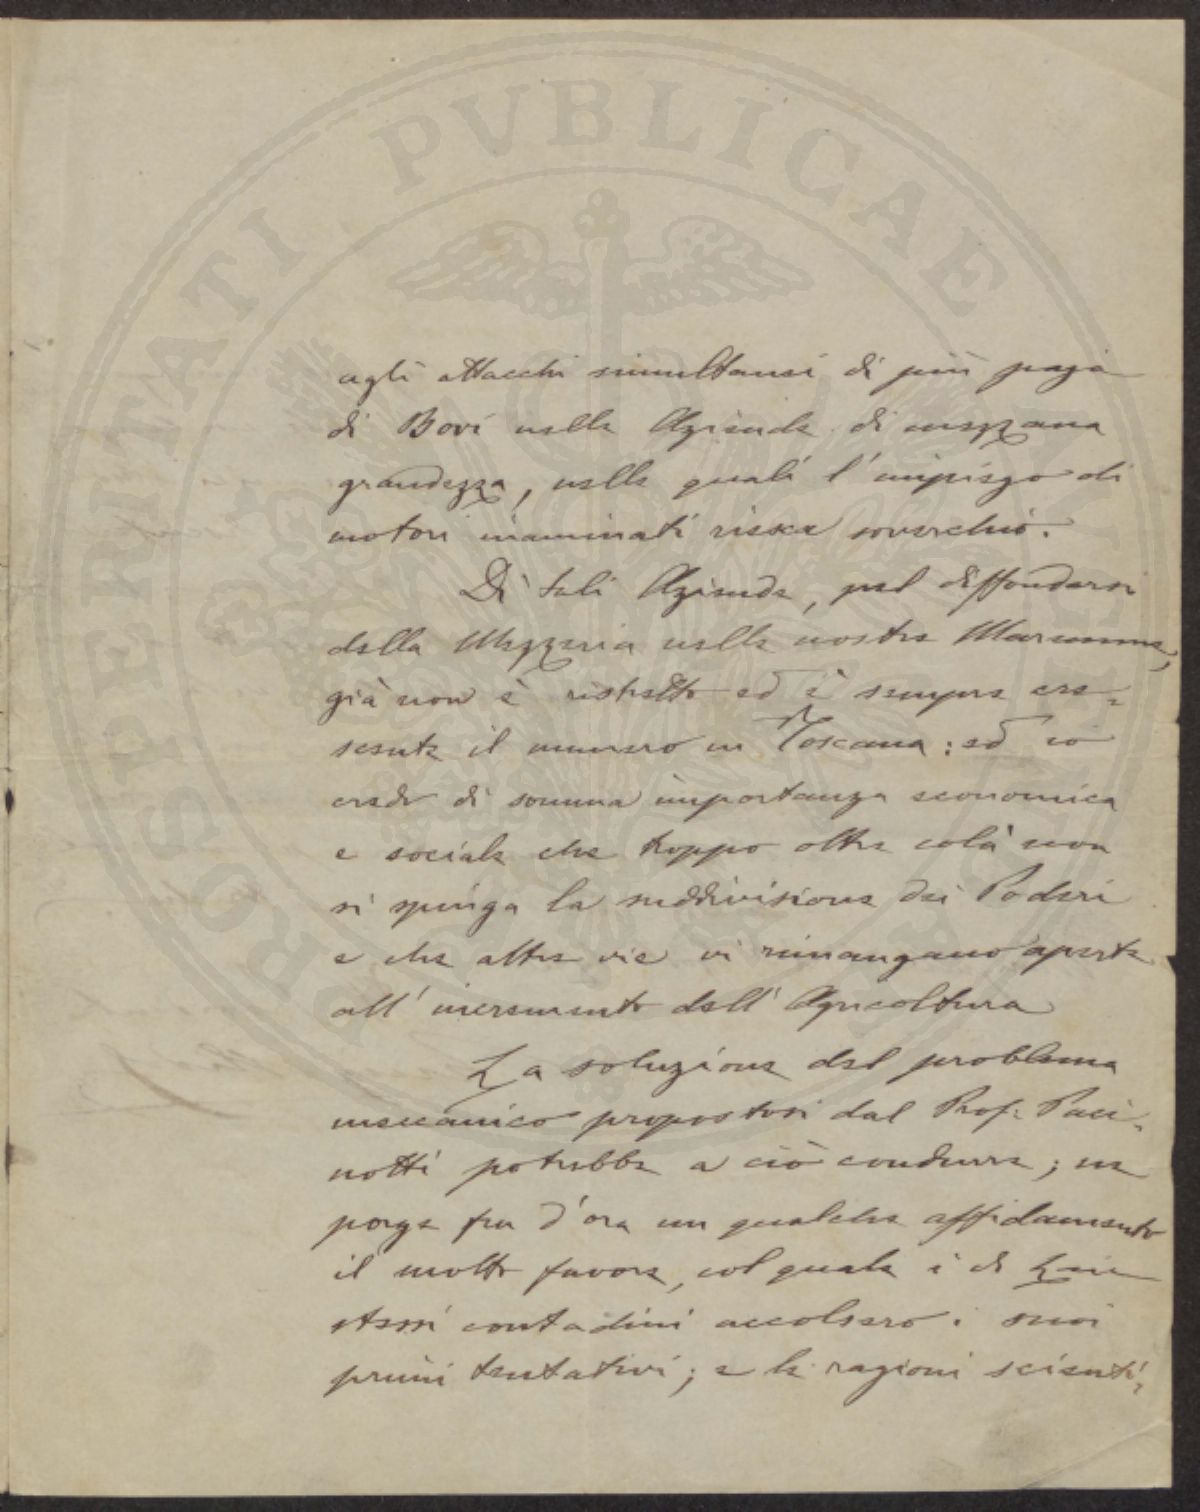 PROSPERITATI PVBLICAE
agli attacchi simultanei di più paja
di Bovi nelle Aziende di mezzana
grandezza, nelle quali l'impiego di
motori inanimati riesca soverchio.
Di tali Aziende, pel diffondersi
della Mezzeria nelle nostre Maremme,
già non è ristretto ed è sempre cre-
scente il numero in Toscana: ed io
credo di somma importanza economica
e sociale che troppo oltre colà non
si spinga la suddivisione dei Poderi
e che altre vie vi rimangano aperte
all'incremento dell'Agricoltura
La soluzione del problema
meccanico propostosi dal Prof: Paci-
notti potrebbe a ciò condurre; ne
porge fin d'ora un qualche affidamento
il molto favore, col quale i di Lui
stessi contadini accolsero i suoi
primi tentativi; e le ragioni scienti-